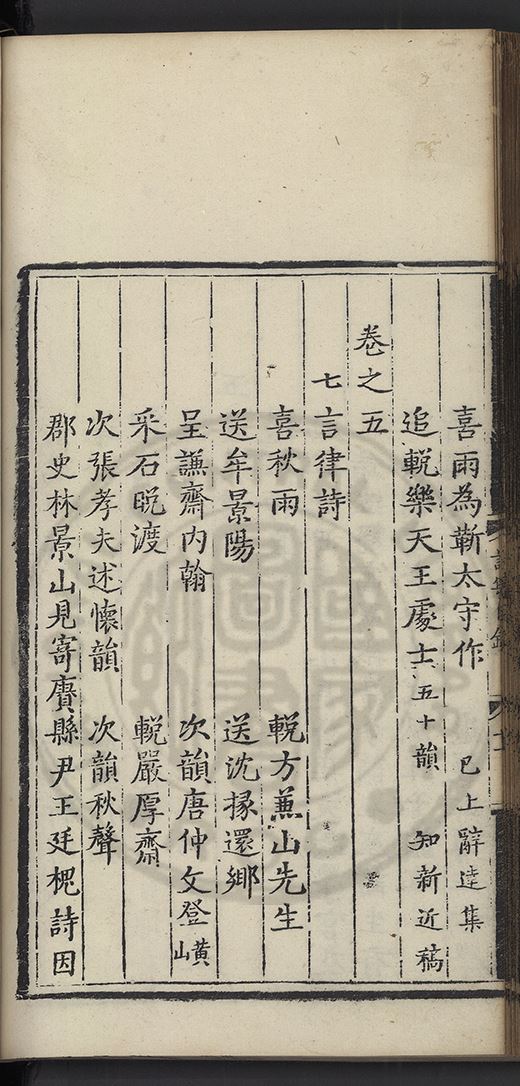 喜雨為蘄太守作 已上辭達集
追輓樂天王處士五十韻 知新近稿
卷之五
七言律詩
喜秋雨 輓方蕙山先生
送牟景陽 送沈掾還鄉
呈謙齋內翰 次韻唐仲文登㠓
采石晚渡 輓嚴厚齋
次張孝夫述懷韻 次韻秋聲
郡史林景山見寄賡縣尹王廷槐詩因